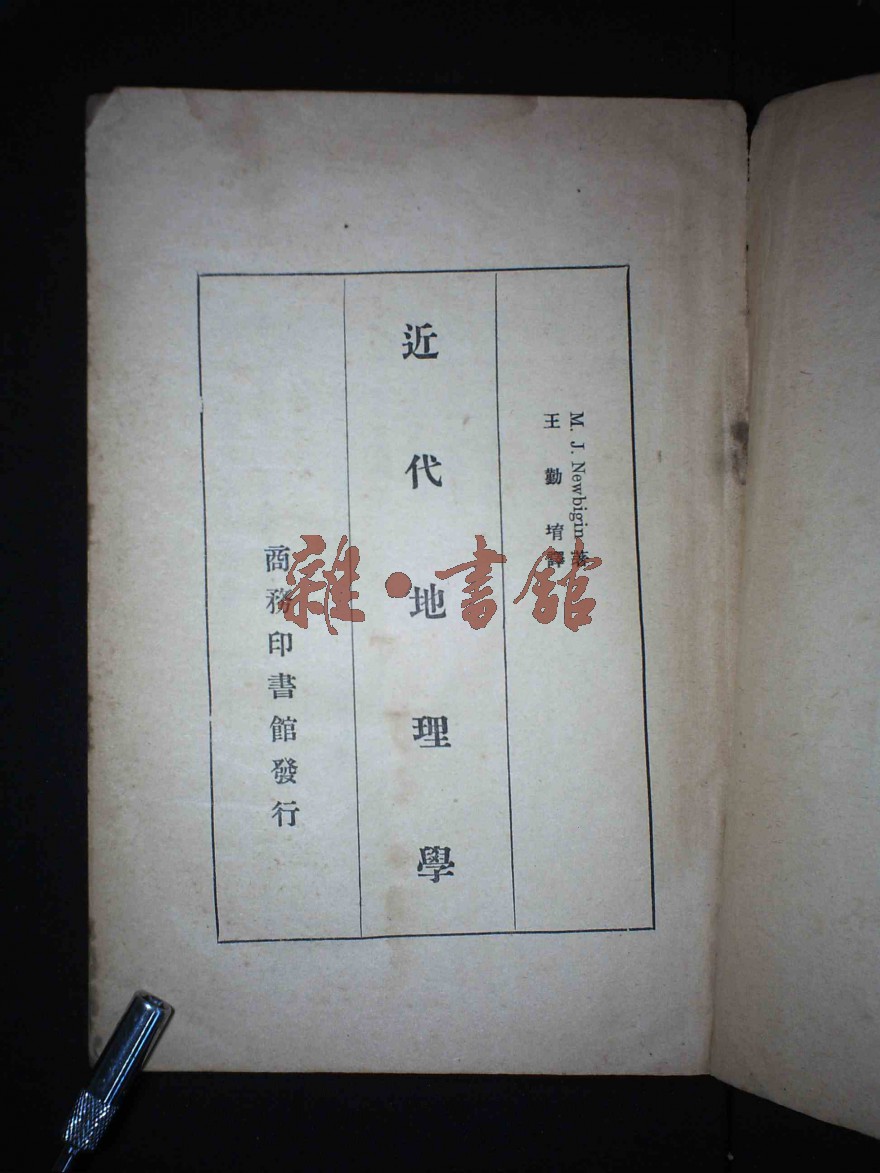 M. J. Newbigin 著
王勤堉譯
近代地理學
商務印書館發行
雜·書館